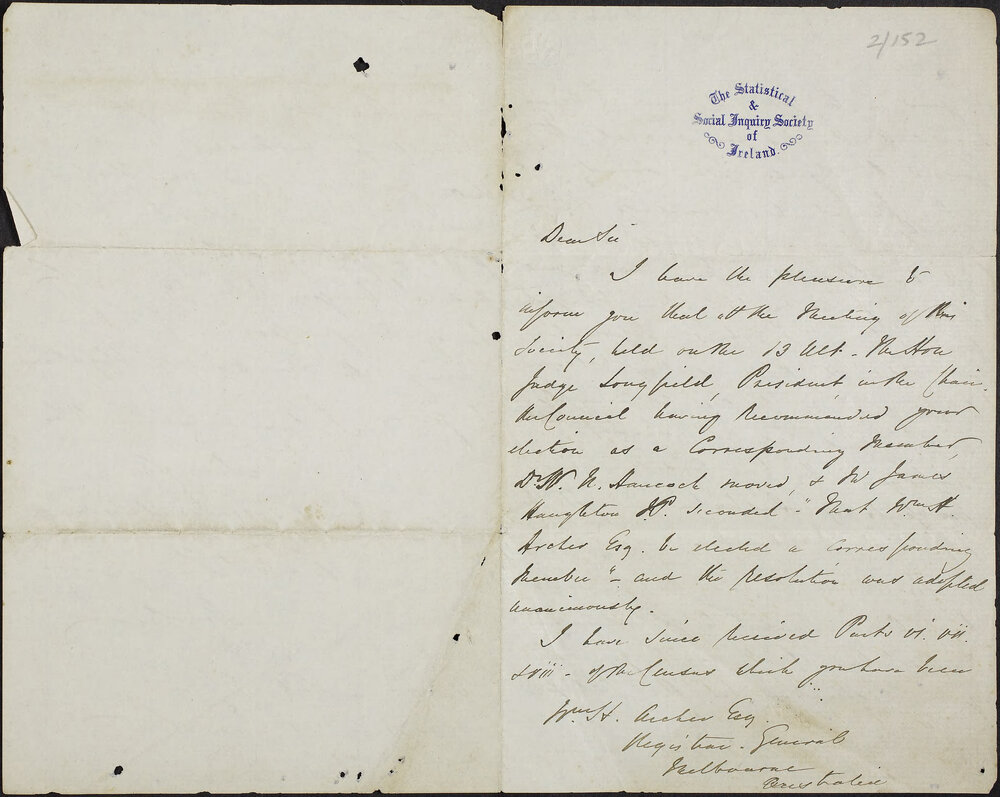 2/152
The Statistical
&
Social Inquiry Society
of
Ireland.
Dear Sir
I have the pleasure to
inform you that at the Meeting of this
Society, held on the 13 Ult. - the Hon
Judge Longfield, President in the Chair.
the Council having recommended your
election as a Corresponding Member,
Dr W. N. Hancock moved, & Mr James
Haughton J.P. seconded "That Wm H.
Archer Esq. be elected a Corresponding
Member" - and the resolution was adopted
unanimously.
I have since received Parts vi. vii.
& viii - of the Census which you have been
Wm H. Archer Esq.
Registrar - General
Melbourne
Australia